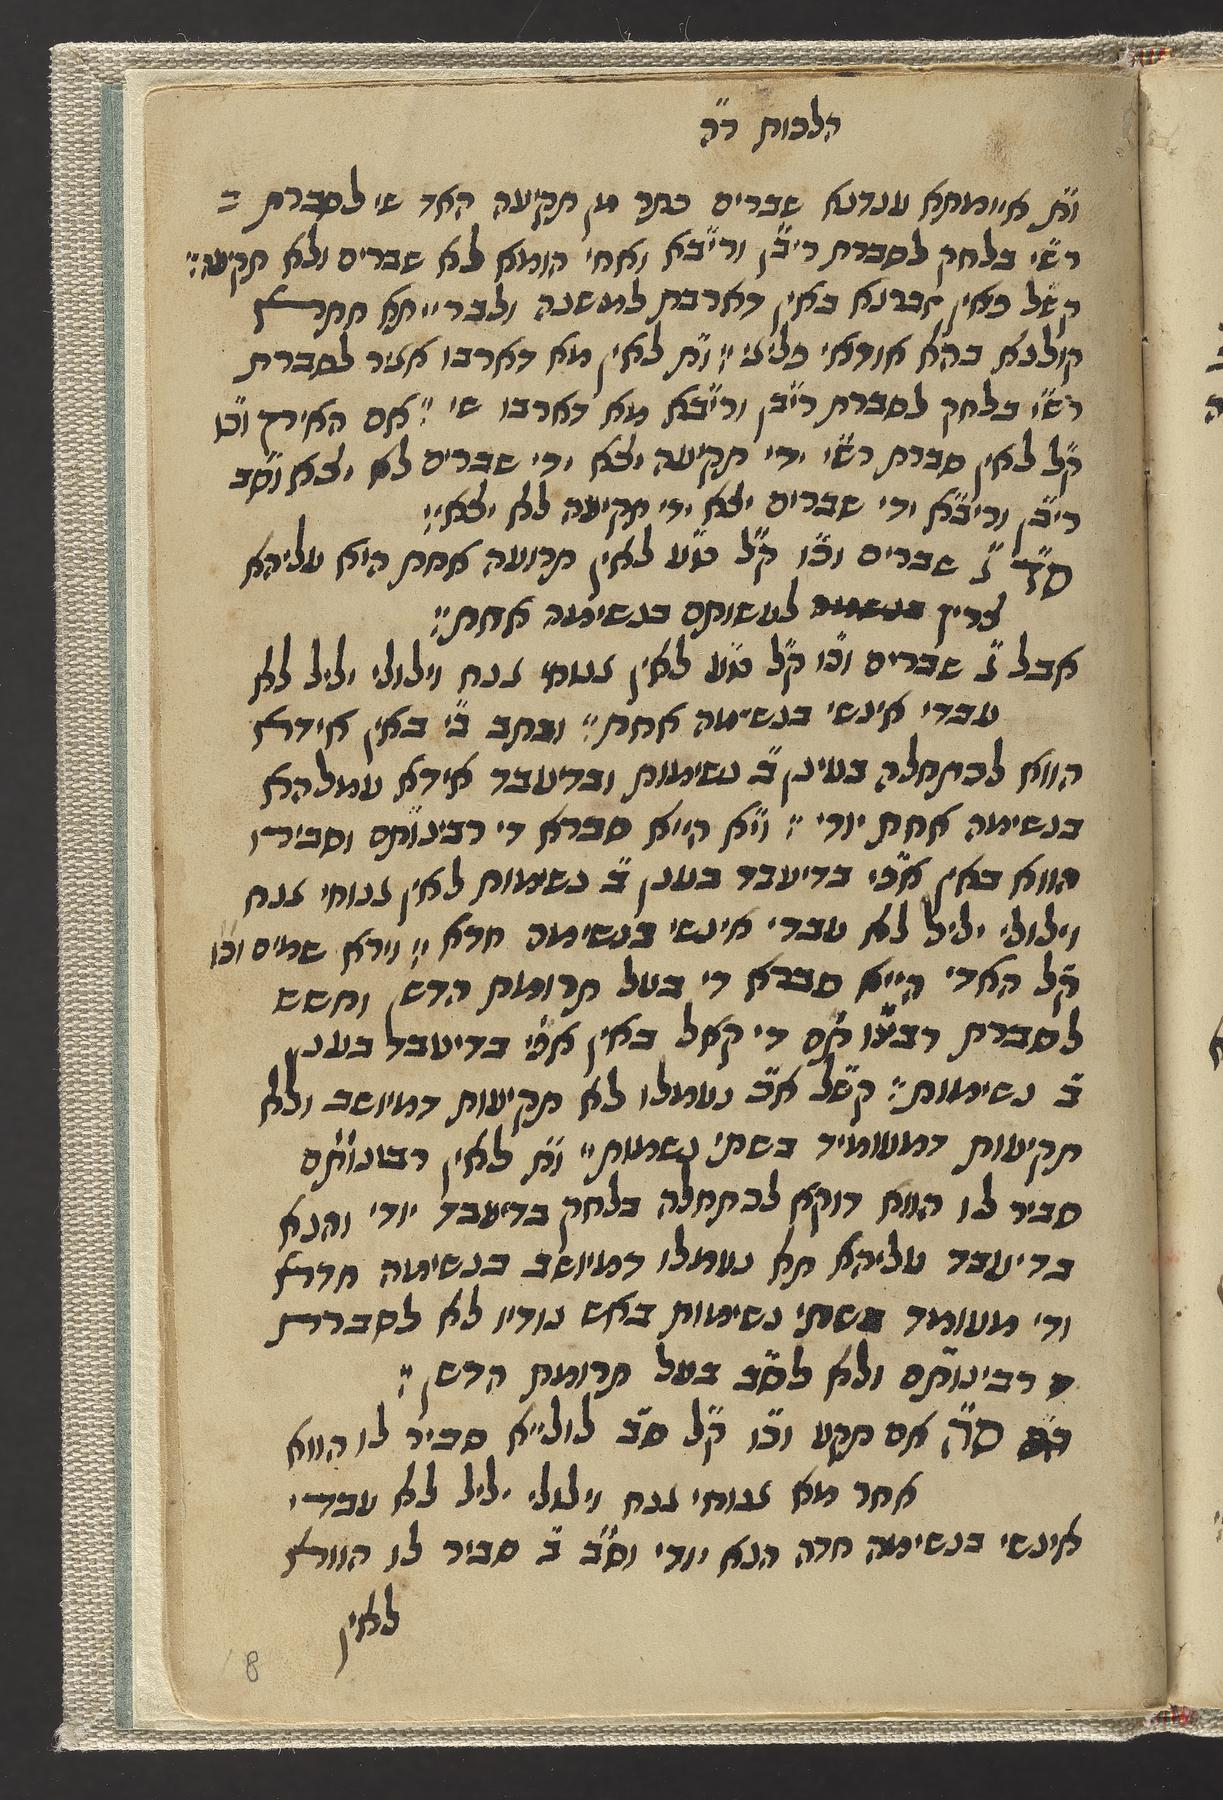 הלכות ר"ה
ות איימתא ענדנא שברים כתר מן תקיעה האד שי לסברת ב
רש"י בלחק לסברת ריב"ן וריב"א ואחי הומא לא שברים ולא תקיעה:
קש"ל כאין זברנא באין דארבת למשנה ולברייתא תתרא
קולנא בהא אודאי פליגי:י ו"ת לאין מא דארבו אגיר לסברת
רש"י בלחק לסברת ריב"ן וריב"א מא דארבו שי :" אם האריך וכו
ק"ל לאין סברת רש"י ידי תקיעה יצא ידי שברים לא יצא וסב
ריב"ן וריב"א ידי שברים יצא ידי תקיעה לא יצא:י
ס"ד ג' שברים וכ"ו ק"ל ט"ע לאין תרועה אחת היא עליהא
צריך לעשותם בנשימה אחת:י
אבל ג' שברים וכ"ו ק"ל ט"ע לאין גנוחי גנח וילולי יליל לא
עבדי אינשי בנשימה אחת:י וכתב ב"י באין אידא
הווא לכתחלה בעינן ב' נשימות ובדיעבד אידא עמלהא
בנשימה אחת יודי :י ו"א הייא סברא די רבינו ת"ם וסבירו
הווא באין אפי' בדיעבד בענן ב' נשימות לאין גנוחי גנח
וילולי יליל לא עבדי אינשי בנשימה חדא :י וירא שמים וכ"ו
ק"ל האדי הייא סברא די בעל תרומת הדשן וחשש
לסברת רבינו ת"ם די קאל באין אפי' בדיעבד בענן
ב' נשימות:י קש"ל א"כ נעמלו לא תקיעות דמיושב ולא
תקיעות דמעומיד בשתי נשמות:י ו"ת לאין רבינו ת"ם
סביר לו הווא דוקא לכתחלה בלחק בדיעבד יודי והנא
בדיעבד עליהא תא נעמלו דמיושב בנשימה חדא
ודי מעומד בשתי נשימות באש נודיו לא לסברת
רבינו ת"ם ולא לס"ב בעל תרומת הדשן :י
ס"ה אם תקע וכ"ו ק"ל ס"ב לולייא סביר לו הווא
אחר מא גנוחי גנח וילולי יליל לא עבדי
אינשי בנשימה חדה הנא יודי וס"ב ב' סביר לו הווא
לאין
8